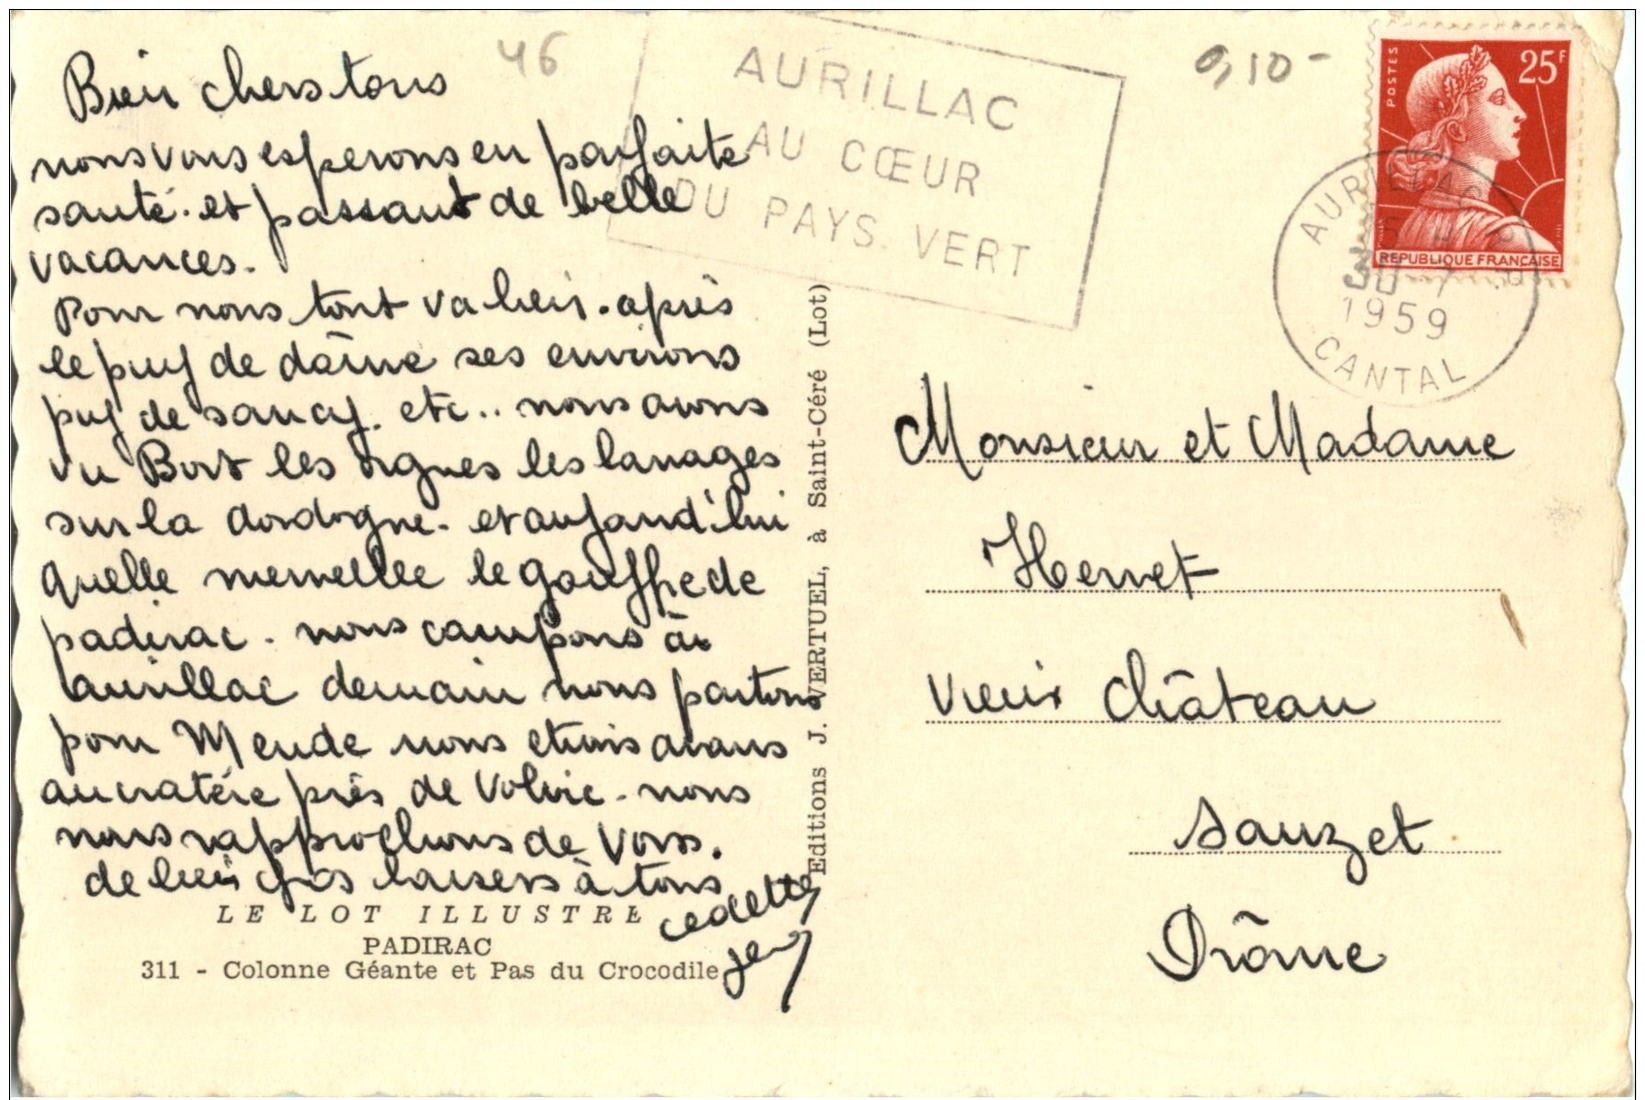 46
0,10-
AURILLAC
AU CŒUR
DU PAYS VERT
POSTES
25F
REPUBLIQUE FRANÇAISE
AURILLAC
1959
CANTAL
Bien chers tous
nous vous esperons en parfaite
santé. et passant de belle
vacances.
Pour nous tout va bien. après
le puy de dôme ses environs
puy de sancy. etc.. nous avons
vu Bort les orgues les barrages
sur la dordogne. et aujourd'hui
quelle merveille le gouffre de
padirac. nous campons à
aurillac demain nous partons
pour Mende nous etions avant
au cratére près de Volvic. nous
nous rapprochons de vous.
de bien gros baisers à tous
LE LOT ILLUSTRE
PADIRAC
311 - Colonne Géante et Pas du Crocodile
Editions J. VERTUEL, à Saint-Céré (Lot)
Monsieur et Madame
Vieux Château
Sauzet
Drôme